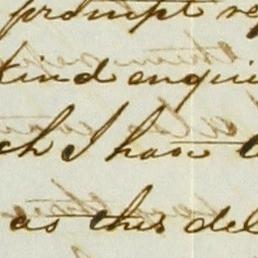 prompt re
kind enqui
ch I have
as this del